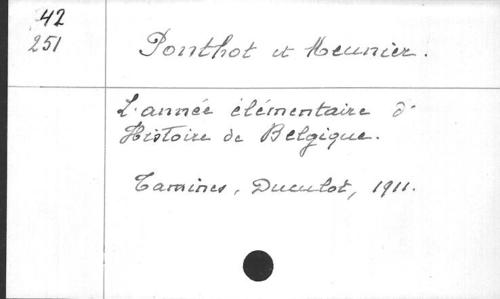 42
251
Ponthot et Meunier.
L'année élémentaire d'
Histoire de Belgique.
Tamines, Duculot, 1911.